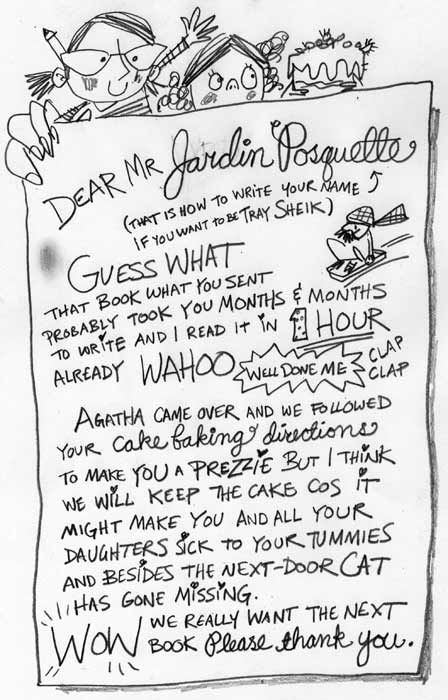 DEAR MR Jardin Posquelle
(THAT IS HOW TO WRITE YOUR NAME
IF YOU WANT TO BE TRAY SHEIK)
GUESS WHAT
THAT BOOK WHAT YOU SENT
PROBABLY TOOK YOU MONTHS & MONTHS
TO WRITE AND I READ IT IN 1 HOUR
ALREADY WAHOO WELL DONE ME CLAP
CLAP
AGATHA CAME OVER AND WE FOLLOWED
YOUR cake baking directions
TO MAKE YOU A PREZZIE BUT I THINK
WE WILL KEEP THE CAKE COS IT
MIGHT MAKE YOU AND ALL YOUR
DAUGHTERS SICK TO YOUR TUMMIES
AND BESIDES THE NEXT-DOOR CAT
HAS GONE MISSING.
WOW WE REALLY WANT THE NEXT
BOOK Please thank you.